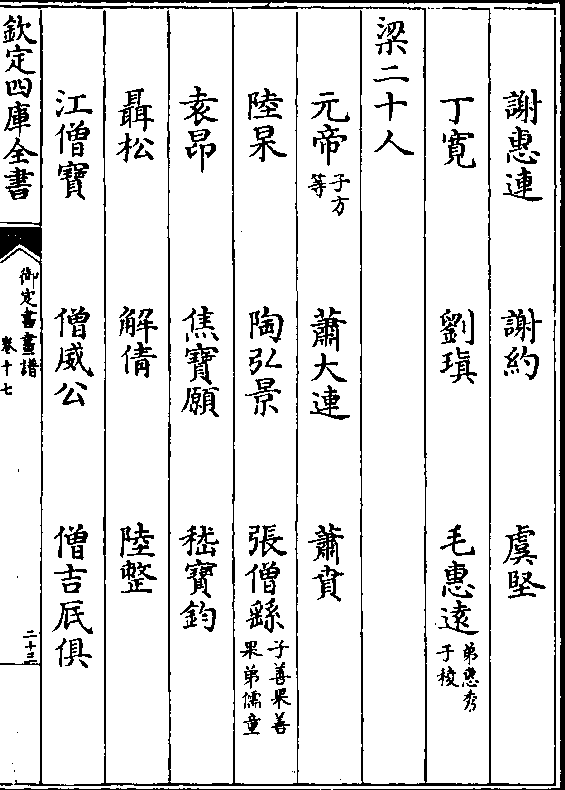 謝惠連　謝約　虞堅
丁寛　劉瑱　毛惠逺弟惠秀子稜
梁二十人
元帝子方等　蕭大連　蕭賁
陸杲　陶弘景　張僧繇子善果善果弟儒童
袁昂　焦寳願　嵇寳鈞
聶松　解倩　陸整
江僧寳　僧威公　僧吉厎俱
欽定四庫全書
御定書畫譜
卷十七
二十三